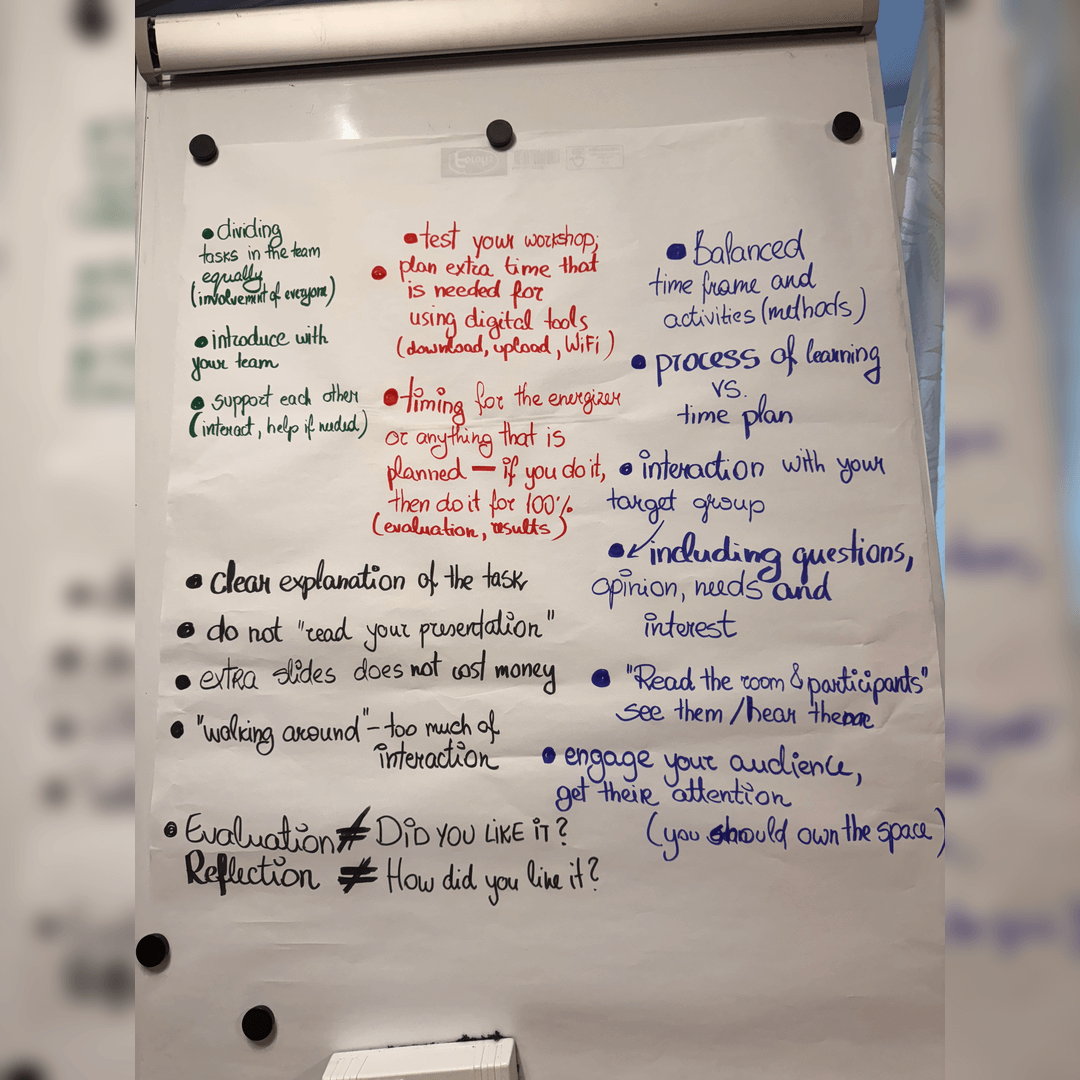 • dividing
tasks in the team
equally
(involvement of everyone)
• introduce with
your team
• support each other
(interact, help if needed)
• test your workshop;
• plan extra time that
is needed for
using digital tools
(download, upload, WiFi)
• timing for the energizer
or anything that is
planned — if you do it,
then do it for 100%
(evaluation, results)
• Balanced
time frame and
activities (methods)
• process of learning
vs.
time plan
• interaction with your
target group
• ↙ including questions,
opinion, needs and
interest
• "Read the room & participants"
see them / hear them
• engage your audience,
get their attention
(you should own the space)
• clear explanation of the task
• do not "read your presentation"
• extra slides does not cost money
• "walking around" – too much of
interaction
• Evaluation ≠ DID YOU LIKE IT?
Reflection ≠ How did you like it?